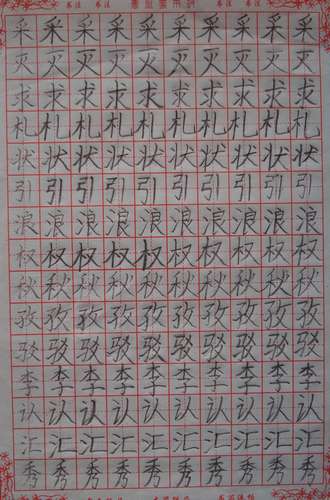 采采采采采采采采采采
灭灭灭灭灭灭灭灭灭灭
求求求求求求求求求求
札札札札札札札札札札
状状状状状状状状状状
引引引引引引引引引引
浪浪浪浪浪浪浪浪浪浪
权权权权权权权权权权
秋秋秋秋秋秋秋秋秋秋
孜孜孜孜孜孜孜孜孜孜
驳驳驳驳驳驳驳驳驳驳
李李李李李李李李李李
认认认认认认认认认认
汇汇汇汇汇汇汇汇汇汇
秀秀秀秀秀秀秀秀秀秀